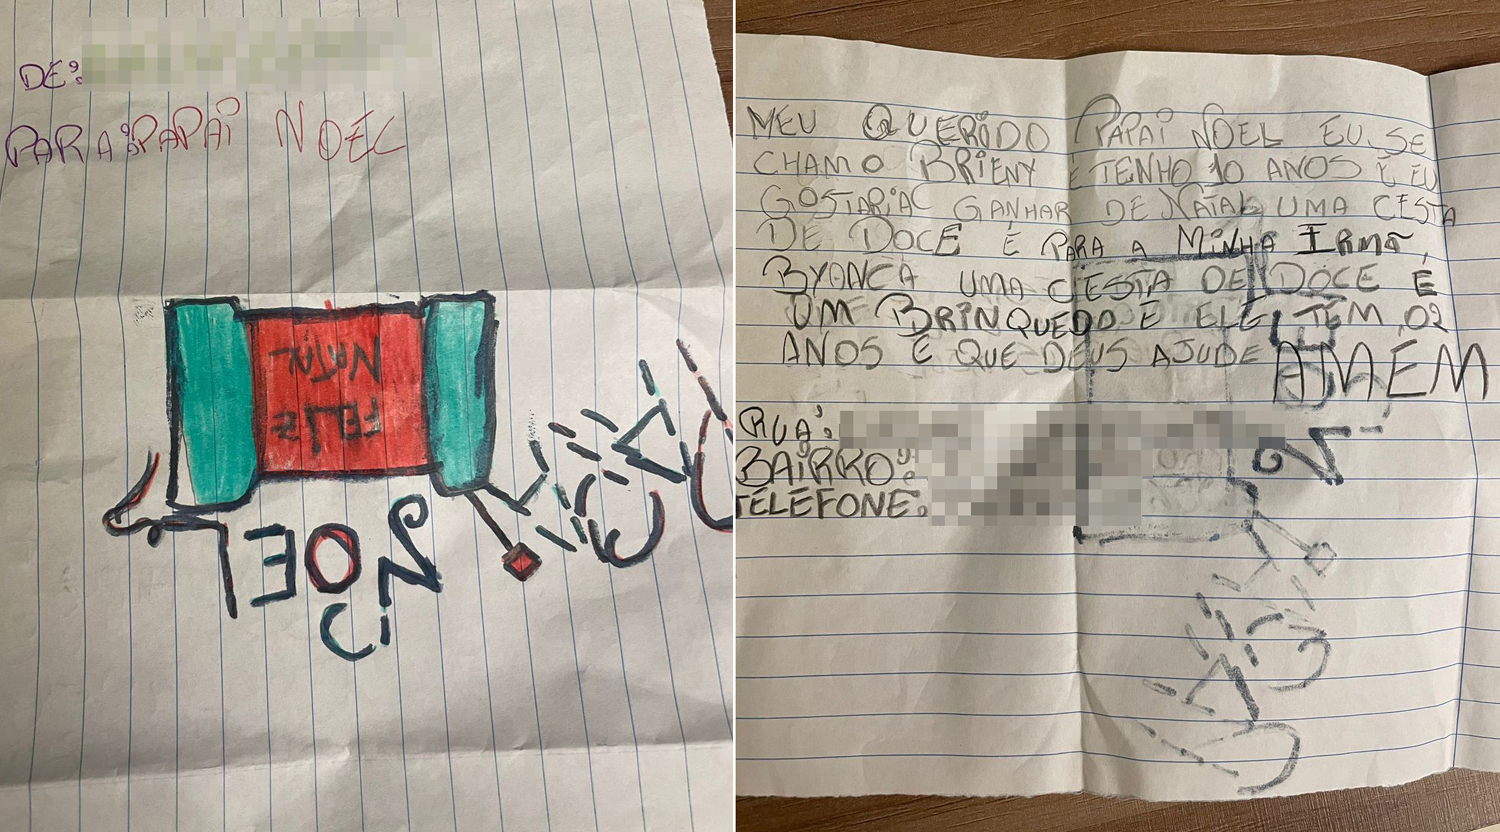 DE:
PARA: PAPAI NOEL
FELIZ
NATAL
NOEL
MEU QUERIDO PAPAI NOEL EU SE
CHAMO BRIENY E TENHO 10 ANOS E EU
GOSTARIA GANHAR DE NATAL UMA CESTA
DE DOCE E PARA A MINHA IRMÃ,
BYONCA UMA CESTA DE DOCE E
UM BRINQUEDO E ELE TEM 02
ANOS E QUE DEUS AJUDE AMEM
RUA:
BAIRRO:
TELEFONE: